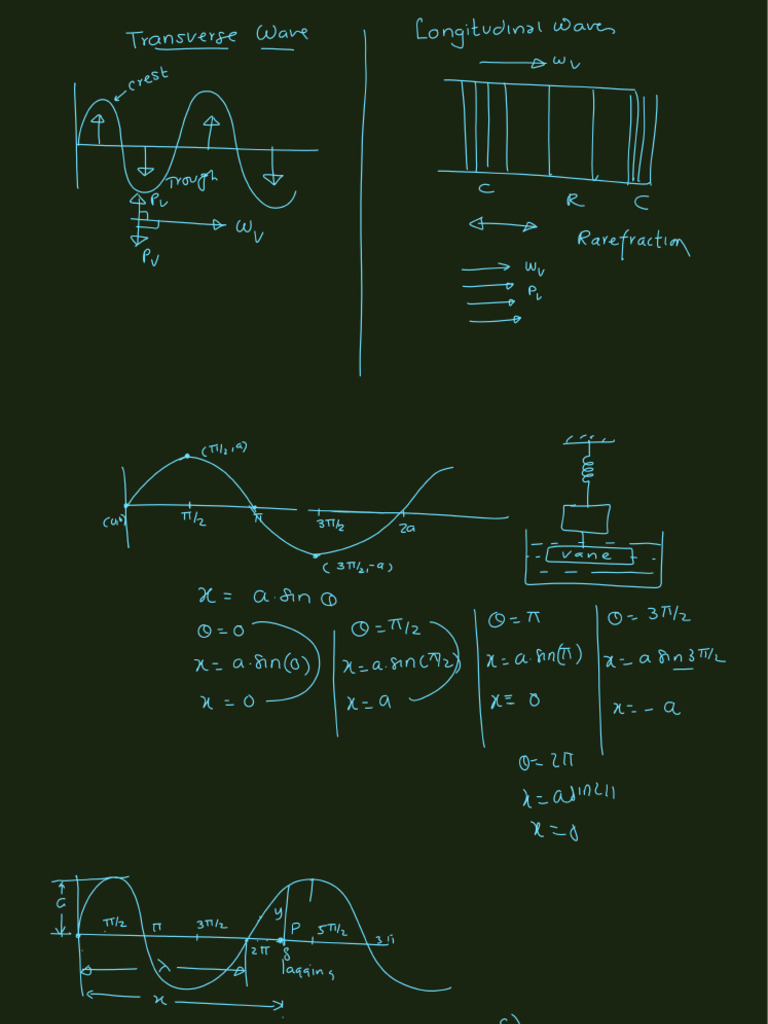 Transverse Wave
crest
Trough
Pv
Wv
Pv
Longitudinal Waves
Wv
C
R
C
Rarefraction
Wv
Pv
(π/2, a)
π/2
π
3π/2
2a
(3π/2, -a)
vane
x = a.sin θ
θ = 0
x = a.sin(0)
x = 0
θ = π/2
x = a.sin(π/2)
x = a
θ = π
x = a.sin(π)
x = 0
θ = 3π/2
x = a sin 3π/2
x = - a
θ = 2π
x = a sin 2π
x = 0
a
π/2
π
3π/2
2π
y
P
5π/2
3π
lagging
λ
x